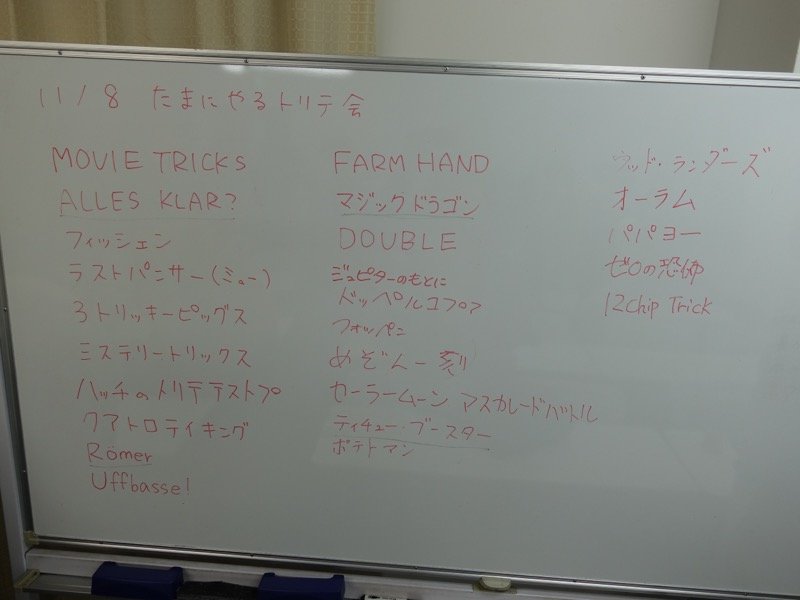 11/8 たまにやるトリテ会
MOVIE TRICKS
ALLES KLAR?
フィッシェン
ラストパンサー(ミュー)
3トリッキーピッグス
ミステリートリックス
ハッチのトリテテストプ
クアトロテイキング
Römer
Uffbasse!
FARM HAND
マジックドラゴン
DOUBLE
ジュピターのもとに
ドッペルコプフ
フォッパン
めぞん一刻
セーラームーン マスカレードバトル
ティチュー・ブースター
ポテトマン
ウッド・ランダーズ
オーラム
パパヨー
ゼロの恐怖
12Chip Trick